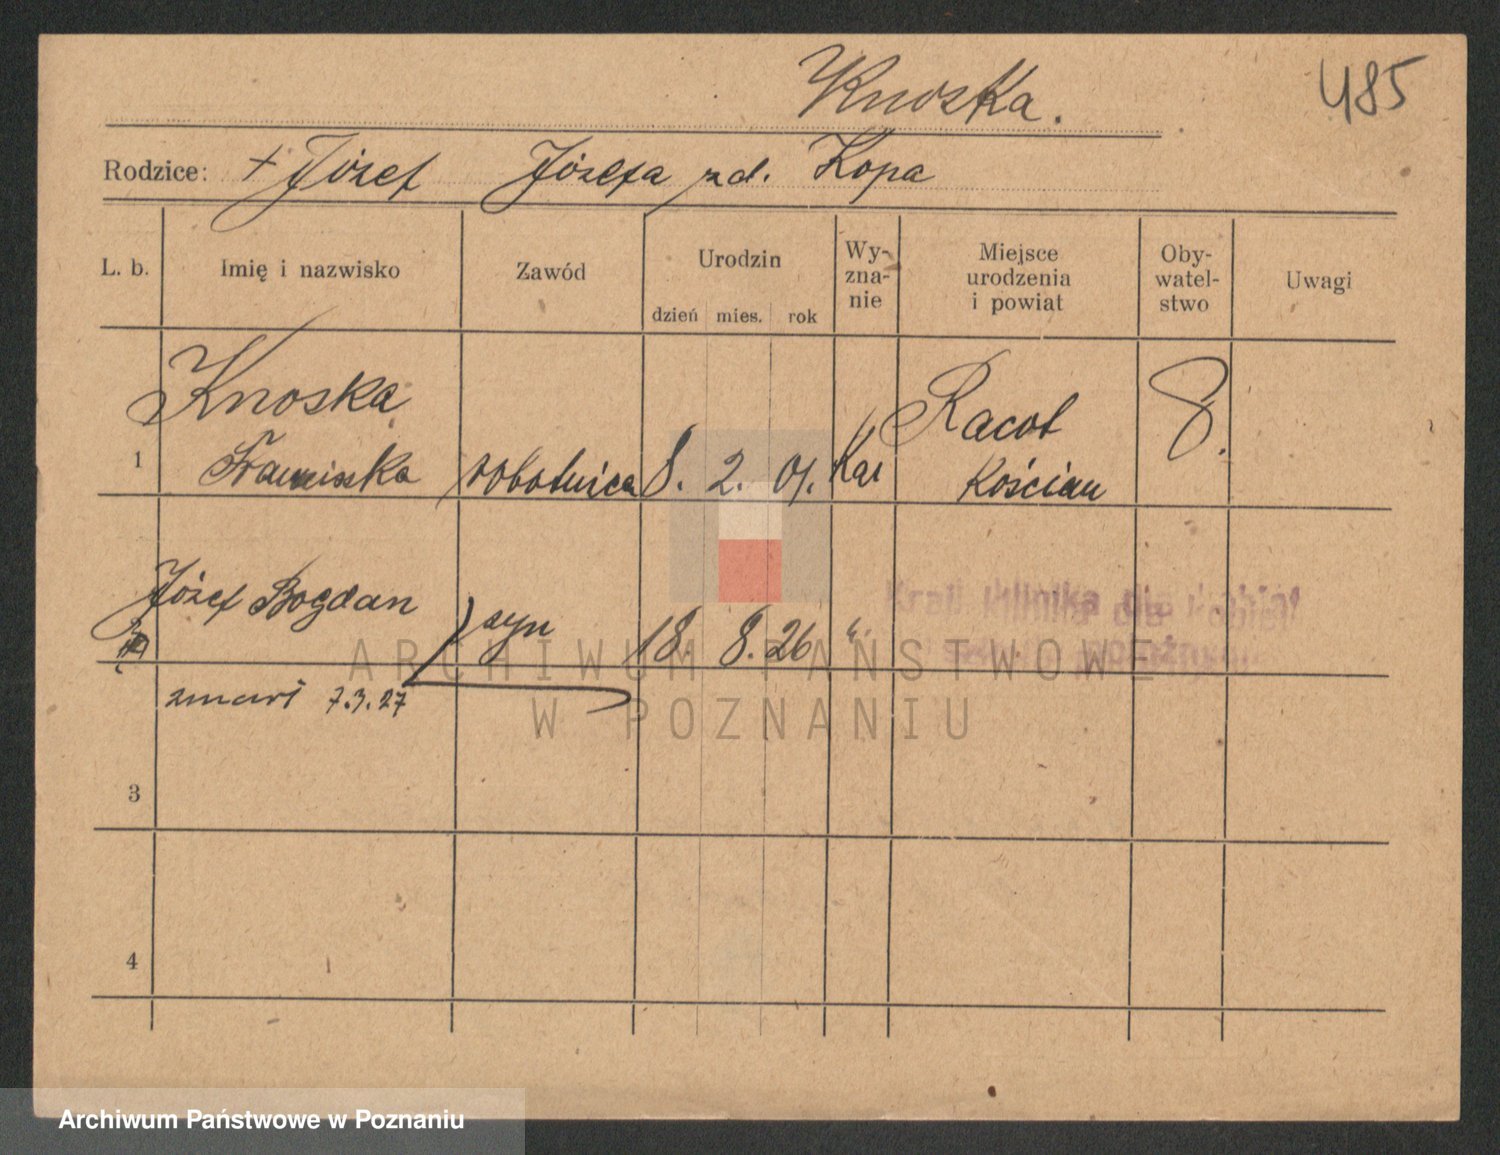 Knoska.
485
Rodzice: + Józef Józefa zd. Kopa
L. b.
Imię i nazwisko
Zawód
Urodzin
dzień mies. rok
Wy-
zna-
nie
Miejsce
urodzenia
i powiat
Oby-
watel-
stwo
Uwagi
Knoska
1 Franciszka robotnica 8. 2. 01. Kat
Racot
Kościan
Józef Bogdan
syn 18. 8. 26 "
Kraj. klinika dla kobiet
zmarł 7.3.27
3
4
ARCHIWUM PAŃSTWOWE
W POZNANIU
Archiwum Państwowe w Poznaniu